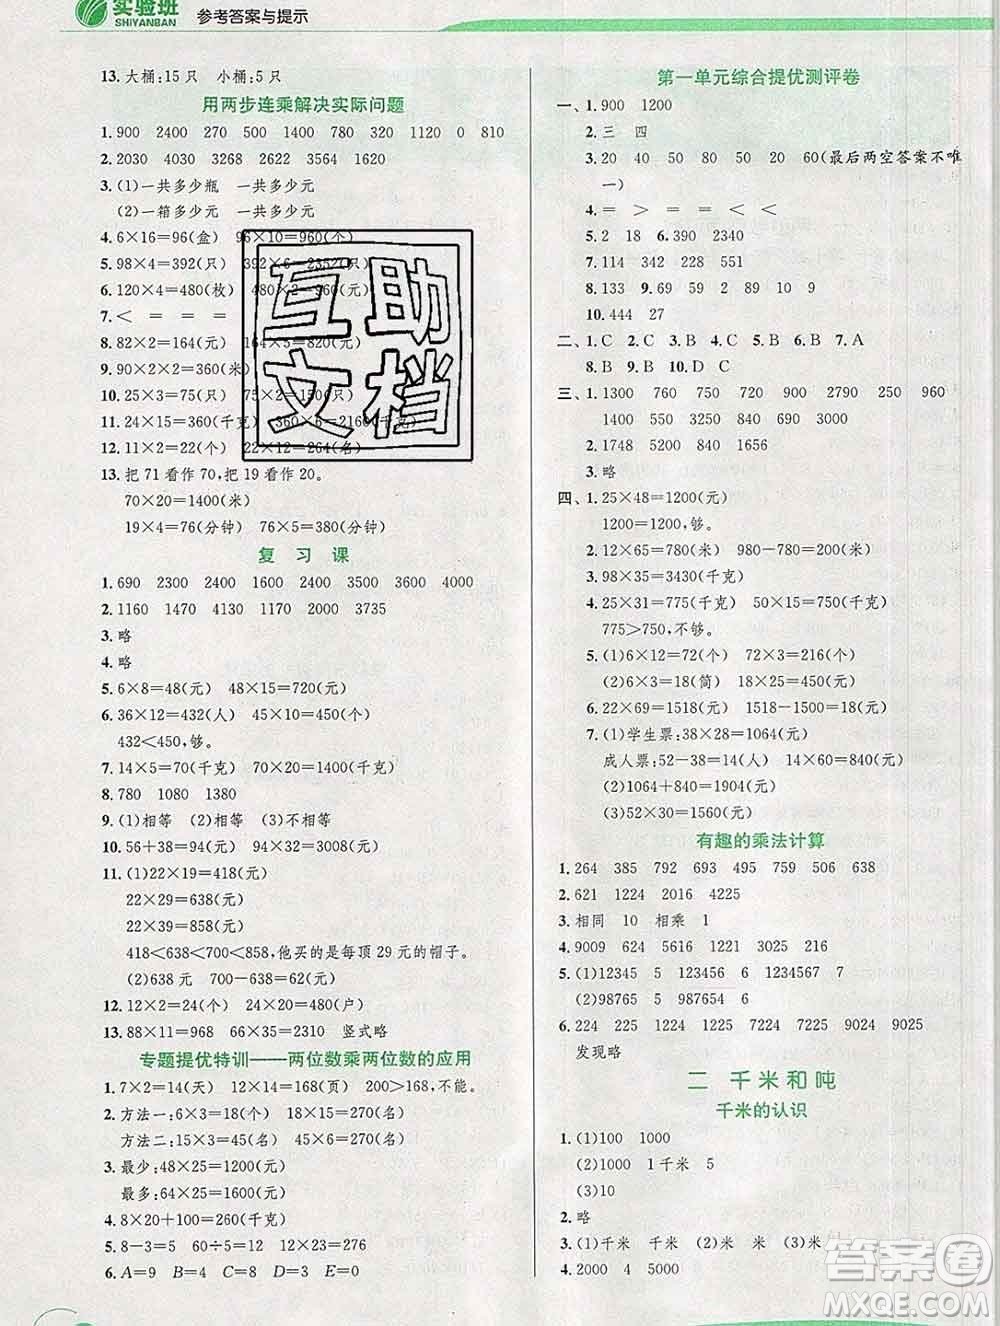 实验班
SHIYANBAN
参考答案与提示
13.大桶:15只 小桶:5只
用两步连乘解决实际问题
1.900 2400 270 500 1400 780 320 1120 0 810
2.2030 4030 3268 2622 3564 1620
3.(1)一共多少瓶 一共多少元
(2)一箱多少元 一共多少元
4.6×16=96(盒) 96×10=960(个)
5.98×4=392(只) 392×6=2352(只)
6.120×4=480(枚) 480×2=960(元)
7.< = = =
8.82×2=164(元) 164×5=820(元)
9.90×2=360(米)
10.25×3=75(只) 75×2=
11.24×15=360(千克) 360×6=2160(元)
12.11×2=22(名) 22×12=264(名)
13.把71看作70,把19看作20。
70×20=1400(米)
19×4=76(分钟) 76×5=380(分钟)
复习课
1.690 2300 2400 1600 2400 3500 3600 4000
2.1160 1470 4130 1170 2000 3735
3.略
4.略
5.6×8=48(元) 48×15=720(元)
6.36×12=432(人) 45×10=450(个)
432<450,够。
7.14×5=70(千克) 70×20=1400(千克)
8.780 1080 1380
9.(1)相等 (2)相等 (3)不相等
10.56+38=94(元) 94×32=3008(元)
11.(1)22×19=418(元)
22×29=638(元)
22×39=858(元)
418<638<700<858,他买的是每顶29元的帽子。
(2)638元 700-638=62(元)
12.12×2=24(户) 24×20=480(户)
13.88×11=968 66×35=2310 竖式略
专题提优特训——两位数乘两位数的应用
1.7×2=14(天) 12×14=168(页) 200>168,不能。
2.方法一:6×3=18(个) 18×15=270(名)
方法二:15×3=45(名) 45×6=270(名)
3.最少:48×25=1200(元)
最多:64×25=1600(元)
4.8×20+100=260(千克)
5.8-3=5 60÷5=12 23×12=276
6.A=9 B=4 C=8 D=3 E=0
第一单元综合提优测评卷
一、1.900 1200
2.三 四
3.20 40 50 80 20 60(最后两空答案不唯
一)
4.= > = = < <
5.2 18 6.390 2340
7.114 228 551
8.133 9.69 59 2
10.444 27
二、1.C 2.C 3.B 4.C 5.B 6.B 7.A
8.B 9.B 10.D C
三、1.1300 760 750 720 900 2790 250 960
1400 550 3250 840 650 2000
2.1748 5200 840 1656
3.略
四、1.25×48=1200(元)
1200=1200,够。
2.12×65=780(米) 980-780=200(米)
3.98×35=3430(千克)
4.25×31=775(千克) 50×15=750(千克)
775>750,不够。
5.(1)6×12=72(个) 72×3=216(个)
(2)6×3=18(筒) 18×12=216(个)
6.22×69=1518(元) 1518-1500=18(元)
7.(1)学生票:38×28=1064(元)
成人票:52-38=14(人) 14×60=840(元)
(2)1064+840=1904(元)
(3)52×30=1560(元)
有趣的乘法计算
1.264 385 792 693 495 759 506 638
2.621 1224 2016 4225
3.相同 10 相乘 1
4.9009 624 5616 1221 3009 7224
5.(1)12345 5 123456 6 1234567 7
(2)98765 5 987654 6
6.224 225 1224 1225 7224 7225 9024 9025
发现略
二 千米和吨
千米的认识
1.(1)100 1000
(2)1000 1千米 5
(3)10
2.略
3.(1)千米 千米 (2)米 米 (3)米
4.2000 4 5000
互助
文档
答案圈
MXQE.COM